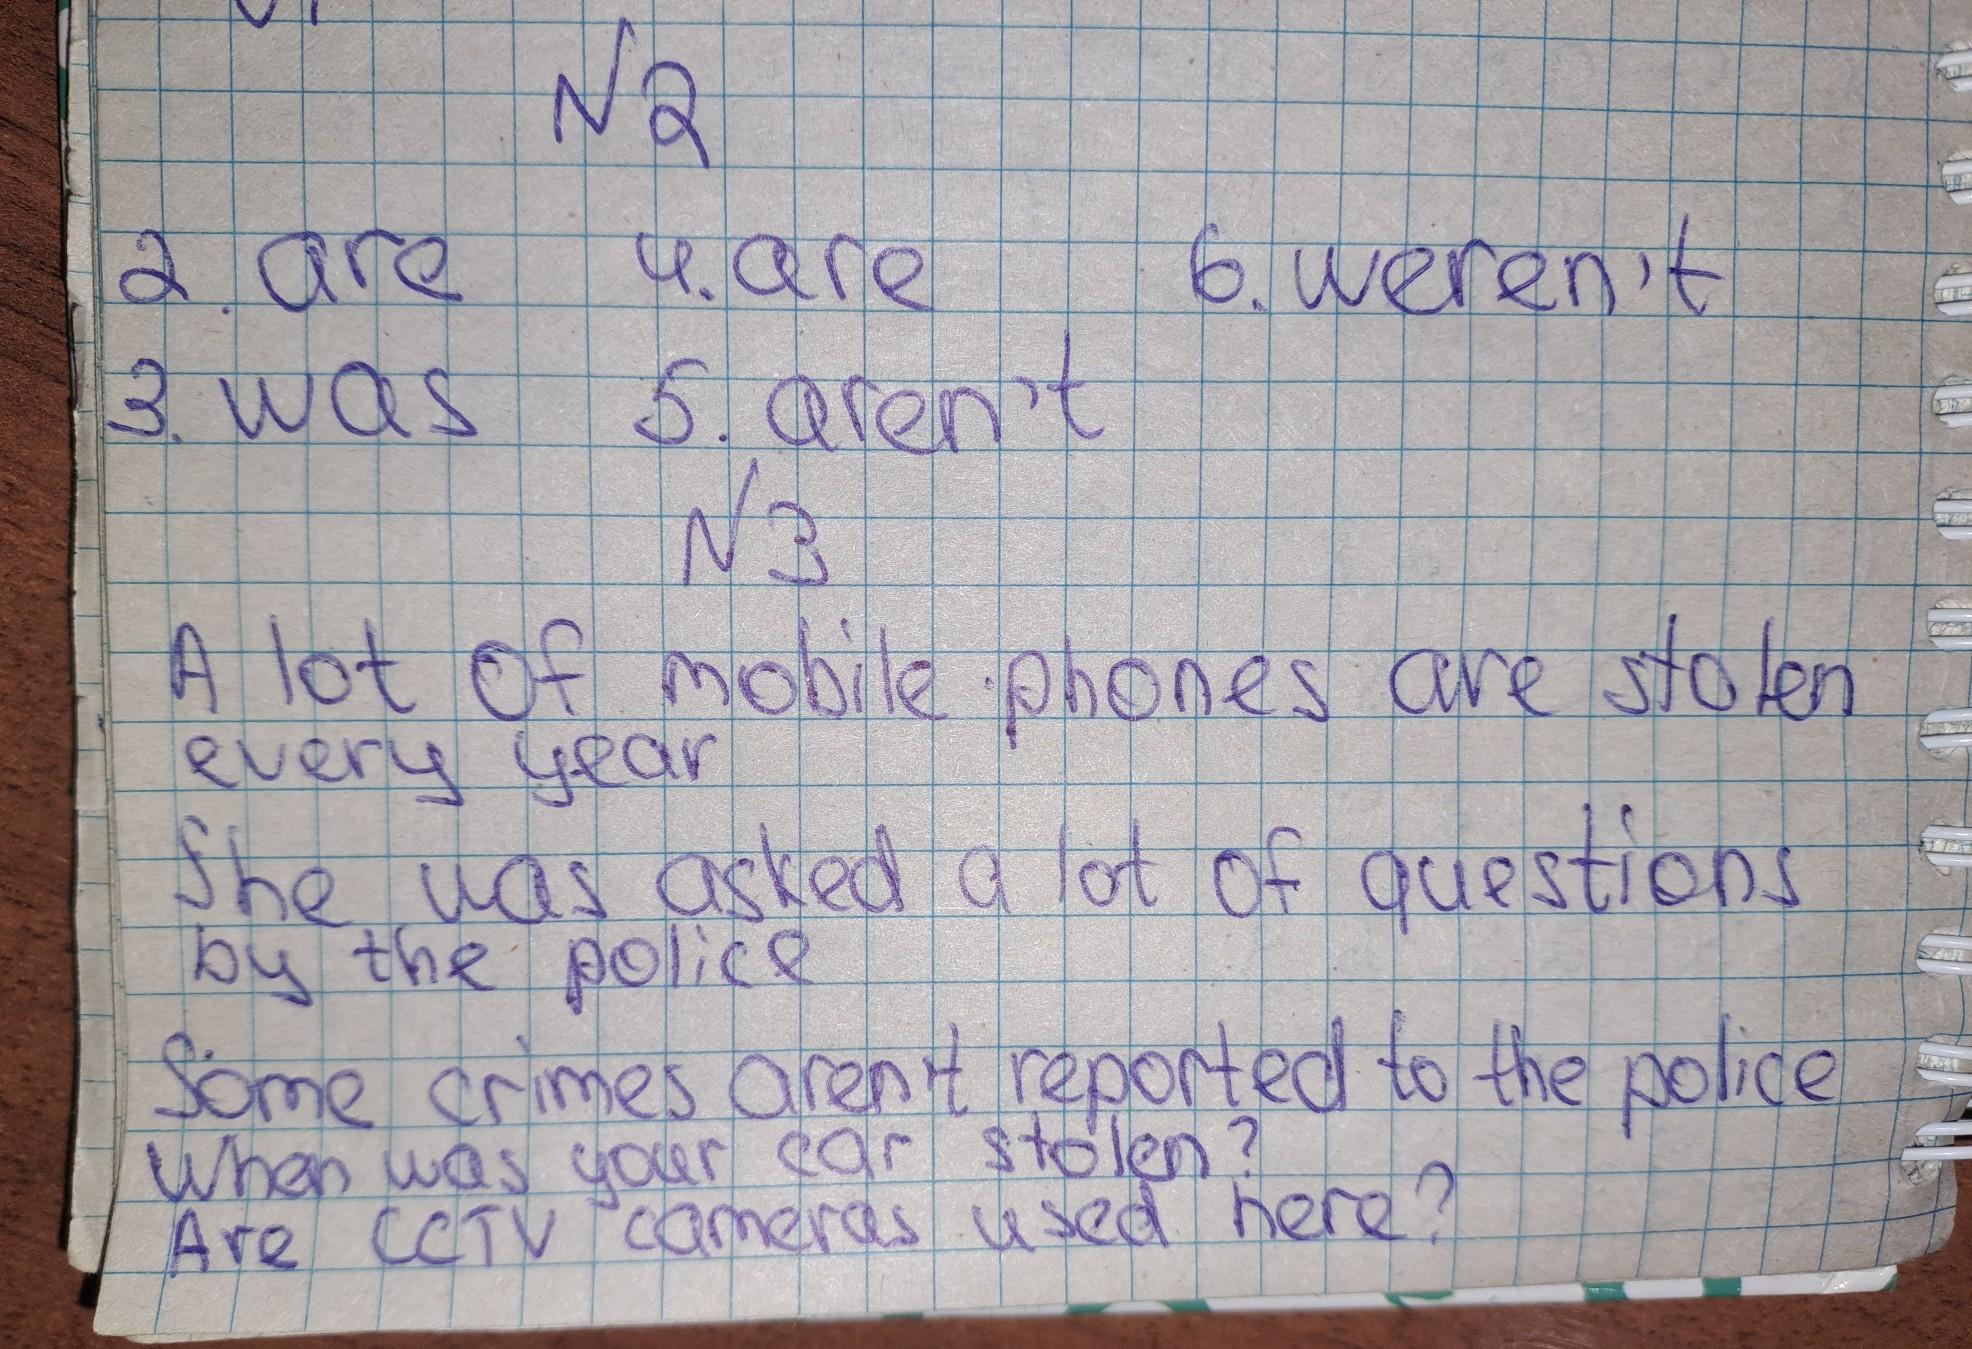 №2
2. are 4. are 6. weren't
3. was 5. aren't
№3
A lot of mobile phones are stolen
every year
She was asked a lot of questions
by the police
Some crimes aren't reported to the police
When was your car stolen?
Are CCTV cameras used here?